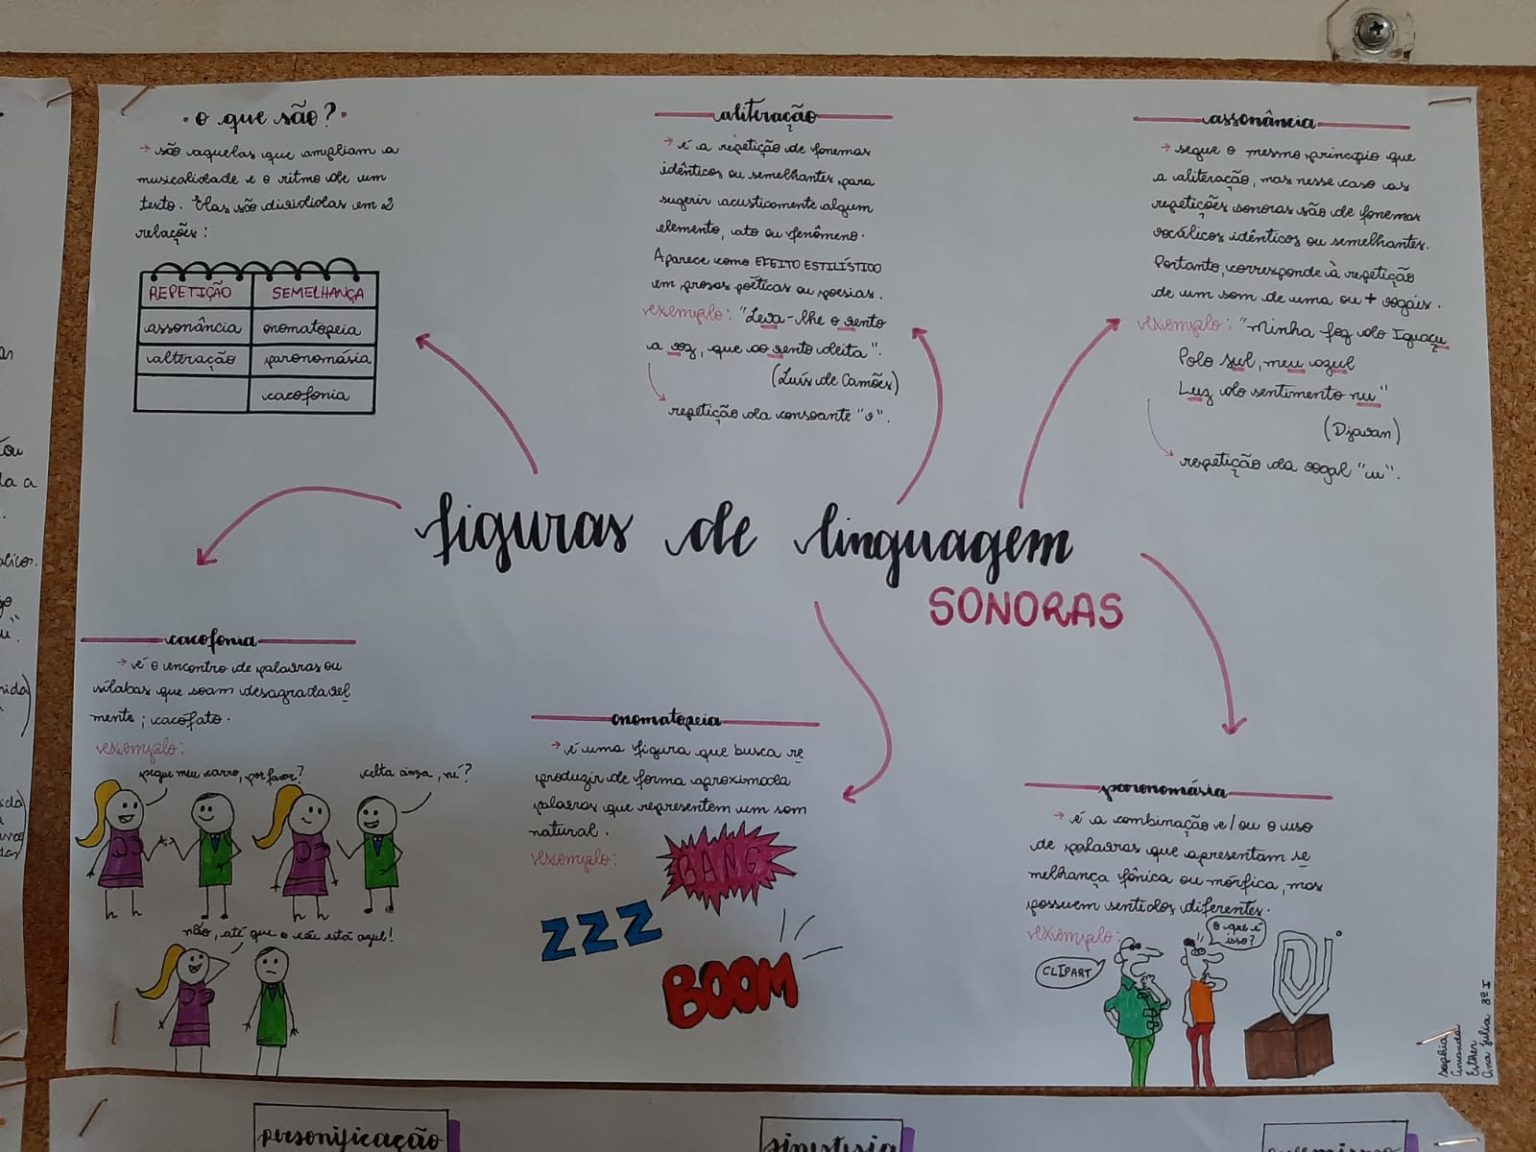 • o que são? •
→ são aquelas que ampliam a
musicalidade e o ritmo de um
texto. Elas são divididas em 2
relações:
REPETIÇÃO SEMELHANÇA
assonância onomatopeia
alteração paronomásia
cacofonia
aliteração
→ é a repetição de fonemas
idênticos ou semelhantes, para
sugerir acusticamente algum
elemento, ato ou fenômeno.
Aparece como EFEITO ESTILÍSTICO
em prosas poéticas ou poesias.
exemplo: "Leva-lhe o vento
a voz, que ao vento deita".
(Luís de Camões)
repetição da consoante "v".
assonância
→ segue o mesmo princípio que
a aliteração, mas nesse caso as
repetições sonoras são de fonemas
vocálicos idênticos ou semelhantes.
Portanto, corresponde à repetição
de um som de uma ou + vogais.
exemplo: "Minha foz do Iguaçu
Polo sul, meu azul
Luz do sentimento nu"
(Djavan)
repetição da vogal "u".
figuras de linguagem
SONORAS
cacofonia
→ é o encontro de palavras ou
sílabas que soam desagradavel
mente; cacófato.
exemplo:
pegue meu carro, por favor?
celta cinza, né?
não, até que o céu está azul!
onomatopeia
→ é uma figura que busca re
produzir de forma aproximada
palavras que representem um som
natural.
exemplo:
BANG
ZZZ
BOOM
paronomásia
→ é a combinação e/ou o uso
de palavras que apresentam se
melhança fônica ou mórfica, mas
possuem sentidos diferentes.
exemplo:
CLIPART
O que é
isso?
Sophia
Amanda
Esther
Ana Julia 3º I
personificação
sinestesia